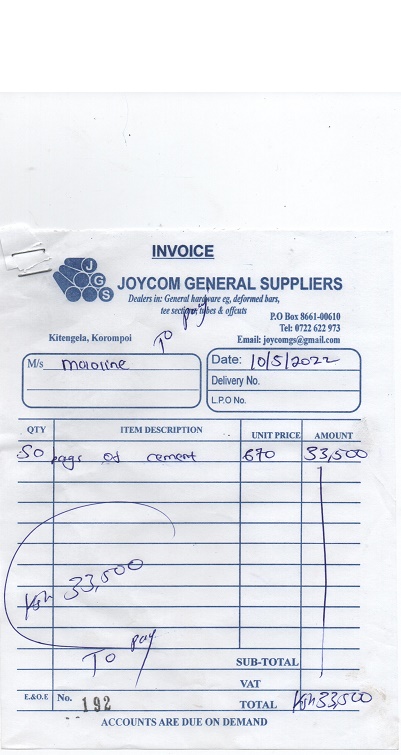 INVOICE
JGS
JOYCOM GENERAL SUPPLIERS
Dealers in: General hardware eg, deformed bars,
tee section, tubes & offcuts
P.O Box 8661-00610
Tel: 0722 622 973
Kitengela, Korompoi
Email: joycomgs@gmail.com
To pay
M/s
Date: 10/5/2022
Delivery No.
L.P.O No.
QTY ITEM DESCRIPTION UNIT PRICE AMOUNT
50 bags of cement 670 33,500
Ksh 33,500
To pay
SUB-TOTAL
VAT
E.&O.E No. 192 TOTAL Ksh 33,500
ACCOUNTS ARE DUE ON DEMAND